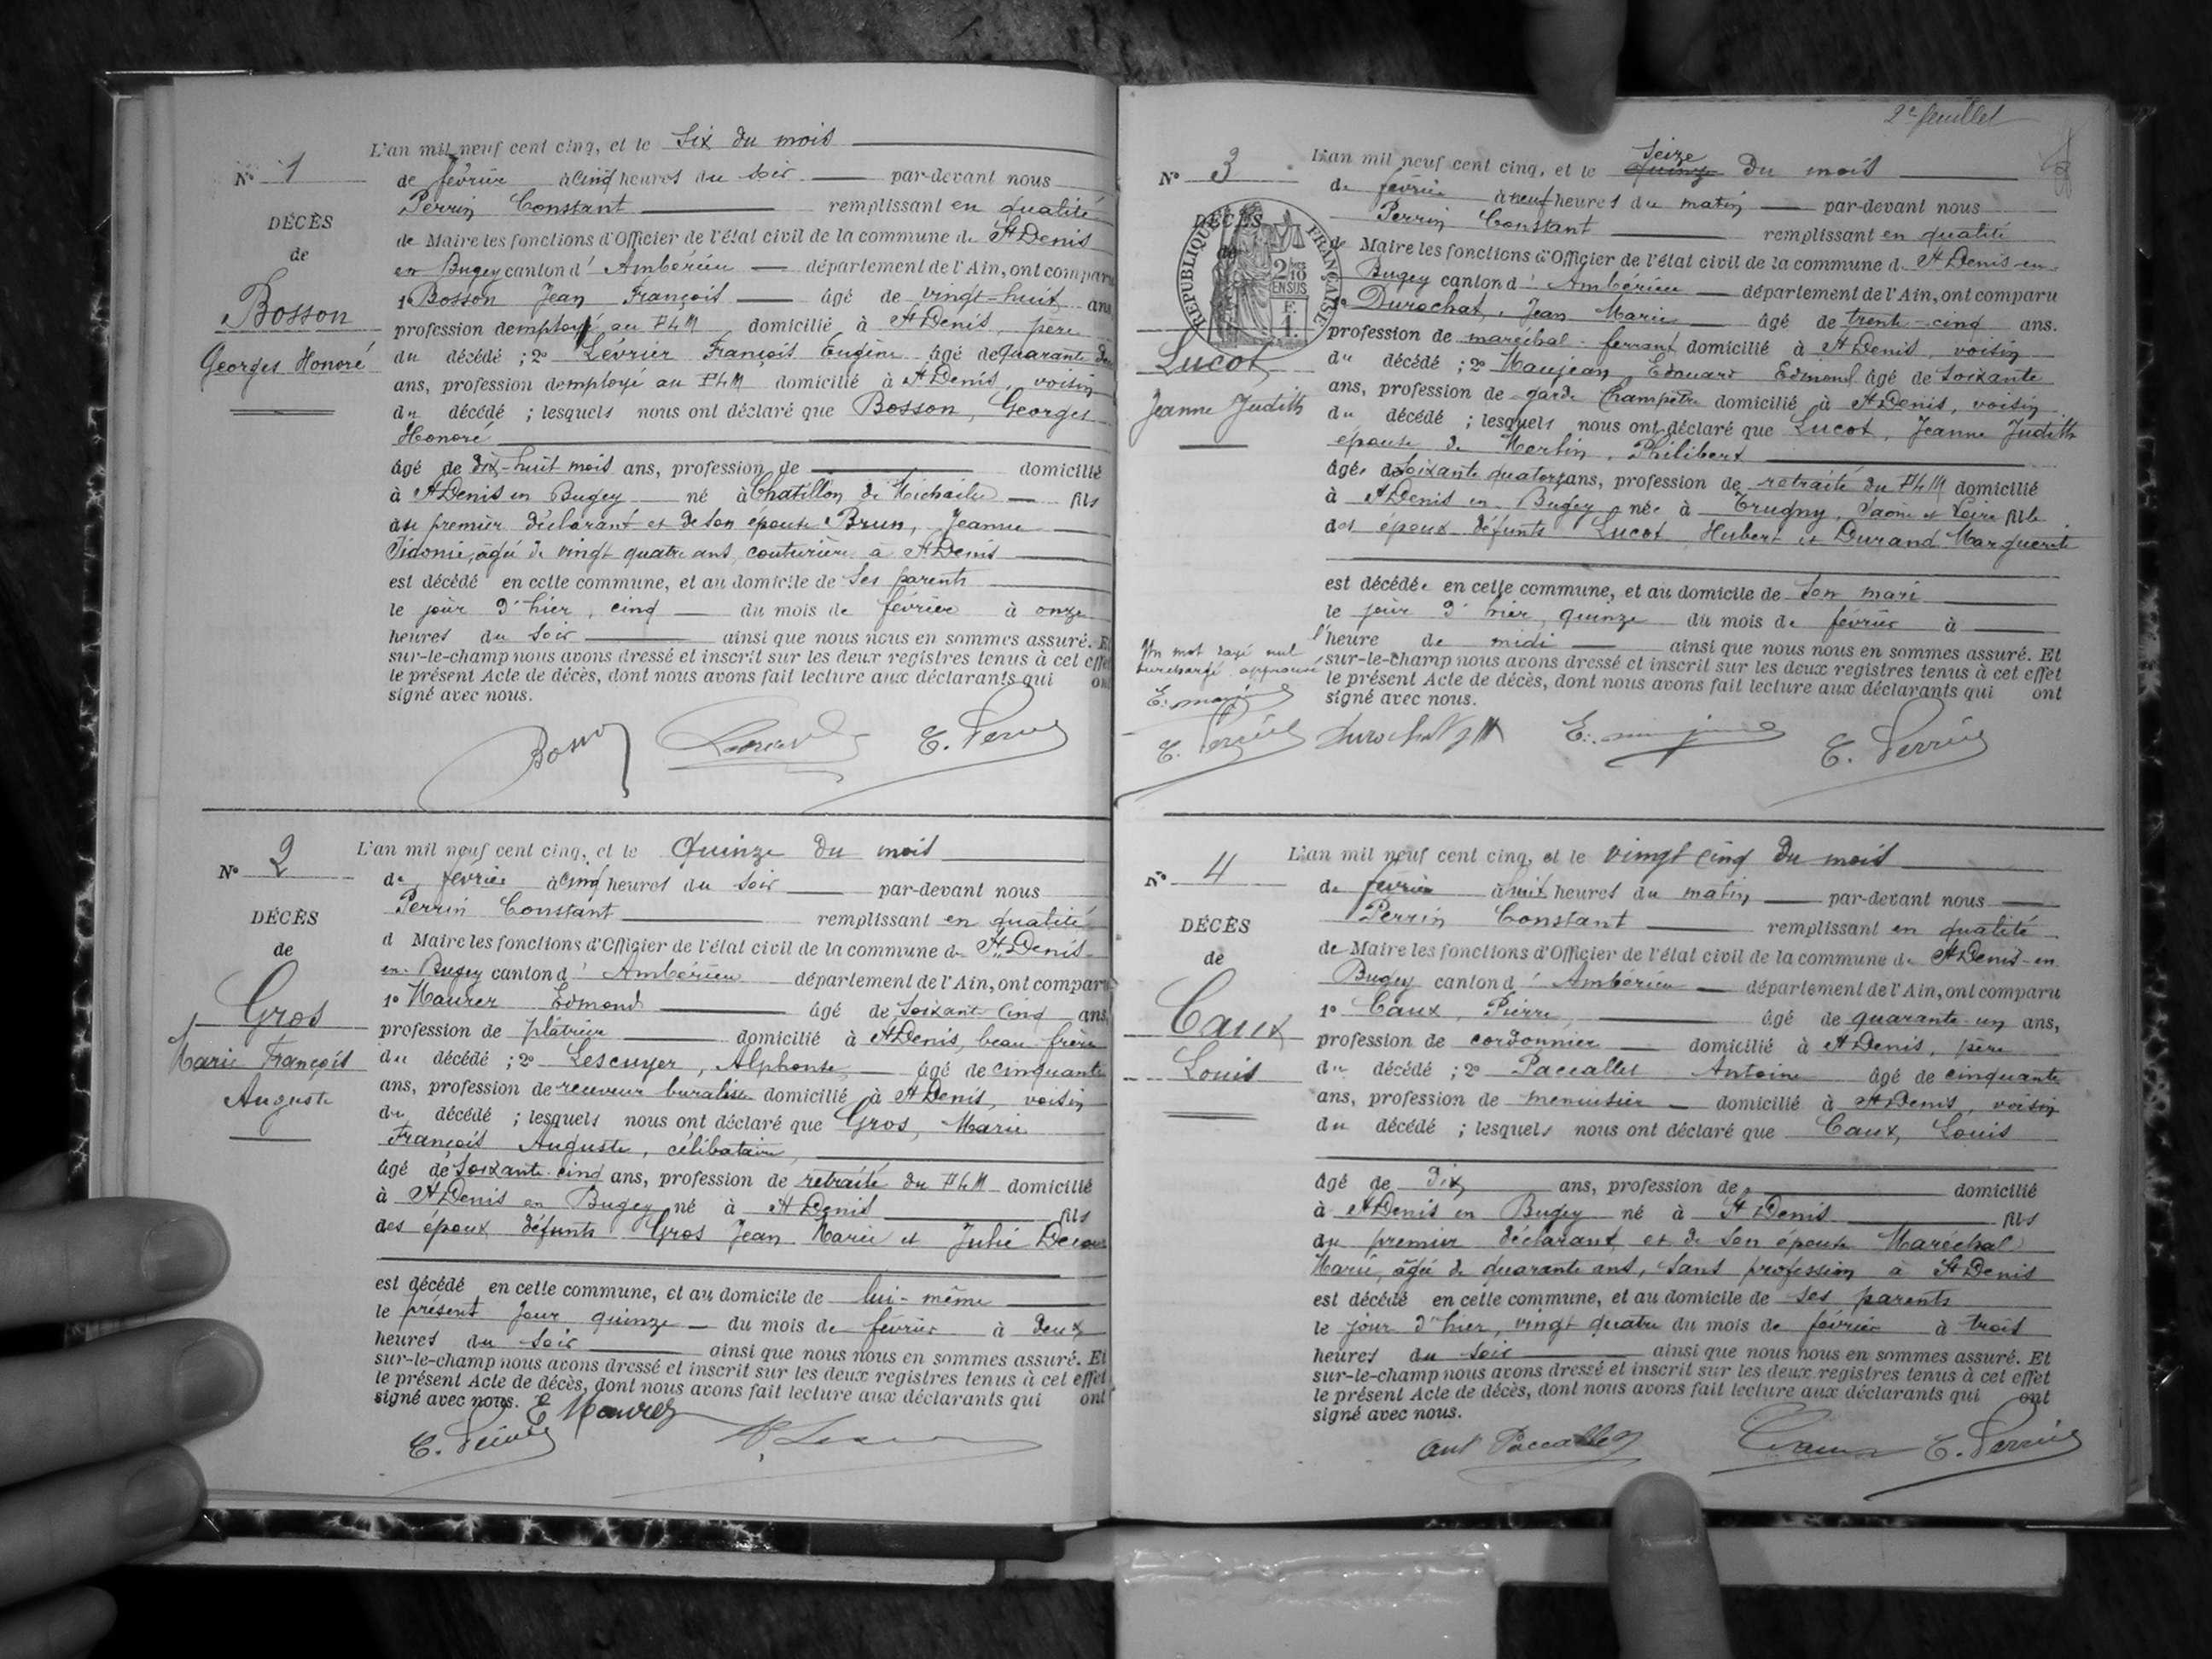 N° 1
DÉCÈS
de
Bosson
Georges Honoré
L'an mil neuf cent cinq, et le six du mois
de février à cinq heures du soir par-devant nous
Perrin Constant remplissant en qualité
de Maire les fonctions d'Officier de l'état civil de la commune de St Denis
en Bugey canton d' Ambérieu département de l'Ain, ont comparu
1° Bosson Jean François âgé de vingt-huit ans
profession d employé au PLM domicilié à St Denis, père
du décédé ; 2° Lévrier François Eugène âgé de quarante
ans, profession d employé au PLM domicilié à St Denis, voisin
du décédé ; lesquels nous ont déclaré que Bosson, Georges
Honoré
âgé de dix-huit mois ans, profession de domicilié
à St Denis en Bugey né à Chatillon de Michaille fils
du premier déclarant et de son épouse Brun, Jeanne
Sidonie, âgée de vingt quatre ans, couturière à St Denis
est décédé en cette commune, et au domicile de ses parents
le jour d'hier, cinq du mois de février à onze
heures du soir ainsi que nous nous en sommes assuré. Et
sur-le-champ nous avons dressé et inscrit sur les deux registres tenus à cet effet
le présent Acte de décès, dont nous avons fait lecture aux déclarants qui ont
signé avec nous.
Bosson C. Perrin
N° 2
DÉCÈS
de
Gros
Marie François
Auguste
L'an mil neuf cent cinq, et le quinze du mois
de février à cinq heures du soir par-devant nous
Perrin Constant remplissant en qualité
d Maire les fonctions d'Officier de l'état civil de la commune de St Denis
en Bugey canton d' Ambérieu département de l'Ain, ont comparu
1° Maurer Edmond âgé de soixante cinq ans,
profession de plâtrier domicilié à St Denis, beau frère
du décédé ; 2° Lescuyer, Alphonse âgé de cinquante
ans, profession de receveur buraliste domicilié à St Denis, voisin
du décédé ; lesquels nous ont déclaré que Gros, Marie
François Auguste, célibataire,
âgé de soixante-cinq ans, profession de retraité du PLM domicilié
à St Denis en Bugey né à St Denis fils
des époux défunts Gros Jean Marie et Julie
est décédé en cette commune, et au domicile de lui-même
le présent jour quinze du mois de février à deux
heures du soir ainsi que nous nous en sommes assuré. Et
sur-le-champ nous avons dressé et inscrit sur les deux registres tenus à cet effet
le présent Acte de décès, dont nous avons fait lecture aux déclarants qui ont
signé avec nous. E Maurer
C. Perrin
2e feuillet
N° 3
DÉCÈS
de
RÉPUBLIQUE FRANÇAISE
2/10
EN SUS
F.
1.
Lucot
Jeanne Judith
L'an mil neuf cent cinq, et le quinze seize du mois
de février à neuf heures du matin par-devant nous
Perrin Constant remplissant en qualité
de Maire les fonctions d'Officier de l'état civil de la commune d St Denis en
Bugey canton d' Ambérieu département de l'Ain, ont comparu
1° Durochat, Jean Marie âgé de trente-cinq ans.
profession de maréchal-ferrant domicilié à St Denis, voisin
du décédé ; 2° Maujean, Edouard Edmond âgé de soixante
ans, profession de garde champêtre domicilié à St Denis, voisin
du décédé ; lesquels nous ont déclaré que Lucot, Jeanne Judith
épouse de Merlin, Philibert
âgée de soixante quatorze ans, profession de retraité du PLM domicilié
à St Denis en Bugey née à Trugny, Saone et Loire fille
des époux défunts Lucot Hubert et Durand Marguerite
est décédée en cette commune, et au domicile de son mari
le jour d'hier, quinze du mois de février à
l'heure de midi ainsi que nous nous en sommes assuré. Et
sur-le-champ nous avons dressé et inscrit sur les deux registres tenus à cet effet
le présent Acte de décès, dont nous avons fait lecture aux déclarants qui ont
signé avec nous.
Un mot rayé nul
surchargé approuvé
C. Perrin Durochat C. Perrin
N° 4
DÉCÈS
de
Caux
Louis
L'an mil neuf cent cinq, et le vingt cinq du mois
de février à huit heures du matin par-devant nous
Perrin Constant remplissant en qualité
de Maire les fonctions d'Officier de l'état civil de la commune de St Denis-en
Bugey canton d' Ambérieu département de l'Ain, ont comparu
1° Caux, Pierre, âgé de quarante-un ans,
profession de cordonnier domicilié à St Denis, père
du décédé ; 2° Paccallet Antoine âgé de cinquante
ans, profession de menuisier domicilié à St Denis, voisin
du décédé ; lesquels nous ont déclaré que Caux, Louis
âgé de dix ans, profession de domicilié
à St Denis en Bugey né à St Denis fils
du premier déclarant et de son épouse Maréchal
Marie, âgée de quarante ans, sans profession à St Denis
est décédé en cette commune, et au domicile de ses parents
le jour d'hier, vingt quatre du mois de février à trois
heures du soir ainsi que nous nous en sommes assuré. Et
sur-le-champ nous avons dressé et inscrit sur les deux registres tenus à cet effet
le présent Acte de décès, dont nous avons fait lecture aux déclarants qui ont
signé avec nous.
Ant Paccallet Caux C. Perrin